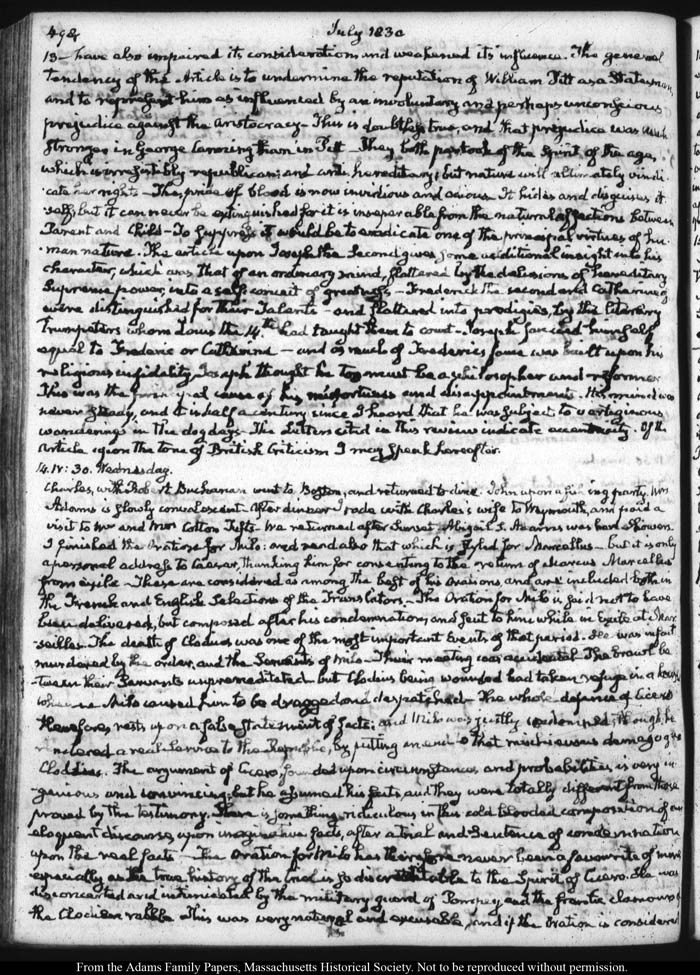 498
July 1830
13 — have also impaired its consideration and weakened its influence. The general
tendency of the Article is to undermine the reputation of William Pitt as a Statesman
and to represent him as influenced by an involuntary and perhaps unconscious
prejudice against the Aristocracy — This is doubtless true, and that prejudice was much
stronger in George Canning than in Pitt — They both partook of the Spirit of the age,
which is irresistibly republican, and anti hereditary; but nature will ultimately vindi
cate her rights — The pride of blood is now invidious and odious. It hides and disguises it
self, but it can never be extinguished for it is inseparable from the natural affections between
Parent and Child — To suppress it would be to eradicate one of the principal virtues of hu
man nature. The article upon Joseph the Second gives some additional insight into his
character, which was that of an ordinary mind, flattered by the delusions of hereditary
Supreme power, into a self conceit of greatness — Frederick the second and Catharine
were distinguished for their Talents — and flattered into prodigies, by the literary
Trumpeters whom Louis the 14th had taught them to court — Joseph fancied himself
equal to Frederic or Catherine — and as much of Frederic's fame was built upon his
religious infidelity Joseph thought he too must be a philosopher and reformer
This was the principal cause of his misfortunes and disappointments. His mind was
never steady, and it is half a century since I heard that he was subject to vertiginous
wanderings in the dog days — The Letters cited in this review indicate . Of the
Article upon the tone of British Criticism I may speak hereafter.
14. IV: 30. Wednesday.
Charles, with Robert Buchanan went to Boston, and returned to dine. John upon a fishing party. Mrs
Adams is slowly convalescent. After dinner I rode with Charles's wife to Weymouth, and paid a
visit to Mr and Mrs Cotton Tufts — We returned after Sunset — Abigail S. Adams was here
I finished the Oration for Milo: and read also that which is styled for Marcellus — but it is only
a personal address to Caesar, thanking him for consenting to the return of Marcus Marcellus
from exile — These are considered as among the best of his orations, and are included both in
the French and English Selections of the Translators. — The Oration for Milo is said not to have
been delivered, but composed after his condemnation, and sent to him while in Exile at Mar
seilles. The death of Clodius was one of the most important Events of that period. He was in fact
murdered by the order, and the Servants of Milo — Their meeting was accidental The brawl be
tween their Servants unpremeditated — but Clodius being wounded had taken refuge in a house
whence Milo caused him to be dragged and despatched — The whole defence of Cicero
therefore, rests upon a false statement of facts; and Milo was justly condemned; though he
rendered a real service to the Republic, by putting an end to that mischievous demagogue
Clodius. The argument of Cicero, founded upon circumstances and probabilities is very in
genious and convincing; but he assumed his facts, and they were totally different from those
proved by the testimony. There is something ridiculous in this cold blooded composition of an
eloquent discourse, upon imaginative facts, after a trial and Sentence of condemnation
upon the real facts — The Oration for Milo has therefore never been a favourite of mine
especially as the true history of the trial is so discreditable to the Spirit of Cicero. He was
disconcerted and intimidated by the military guard of Pompey, and the frantic clamours of
the Clodian rabble This was very natural and excusable, and if the oration is considered
From the Adams Family Papers, Massachusetts Historical Society. Not to be reproduced without permission.